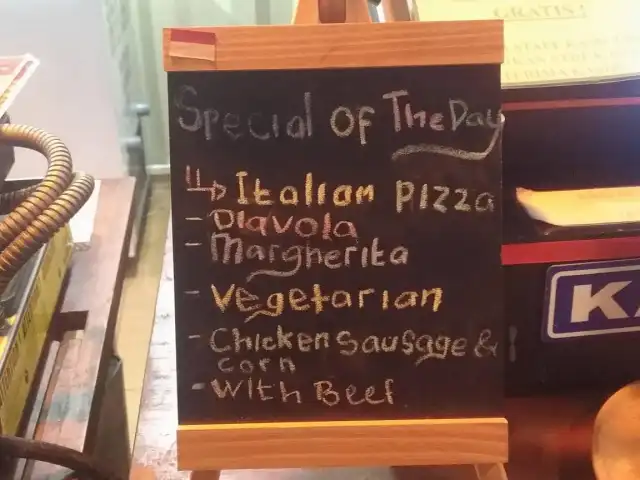 GRATIS!
Special Of The Day
Italian Pizza
- Diavola
- Margherita
- Vegetarian
- Chicken Sausage &
corn
- With Beef